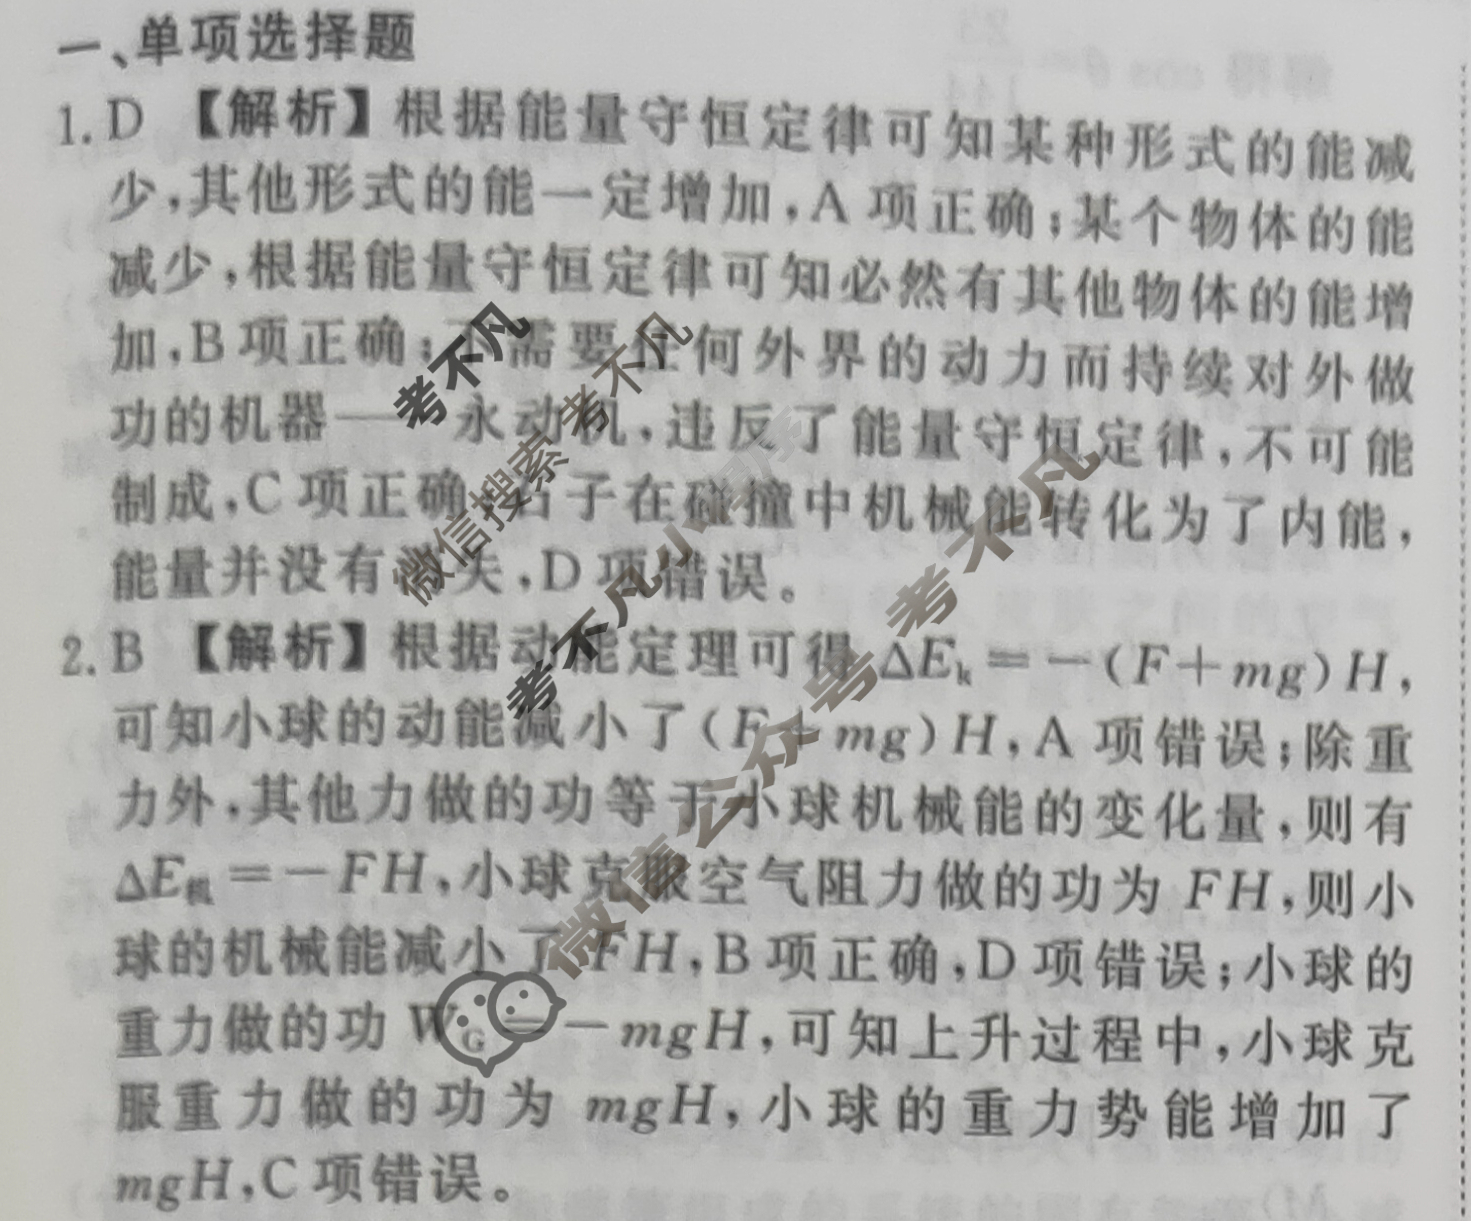 一、单项选择题
1. D 【解析】根据能量守恒定律可知某种形式的能减
少,其他形式的能一定增加,A 项正确;某个物体的能
减少,根据能量守恒定律可知必然有其他物体的能增
加,B 项正确;不需要任何外界的动力而持续对外做
功的机器——永动机,违反了能量守恒定律,不可能
制成,C 项正确;石子在碰撞中机械能转化为了内能,
能量并没有消失,D 项错误。
2. B 【解析】根据动能定理可得 ΔEₖ=-(F+mg)H,
可知小球的动能减小了(F+mg)H,A 项错误;除重
力外,其他力做的功等于小球机械能的变化量,则有
ΔE机=-FH,小球克服空气阻力做的功为 FH,则小
球的机械能减小了 FH,B 项正确,D 项错误;小球的
重力做的功 W_G=-mgH,可知上升过程中,小球克
服重力做的功为 mgH,小球的重力势能增加了
mgH,C 项错误。
考不凡
微信搜索 考不凡
考不凡小
微信公众号 考不凡